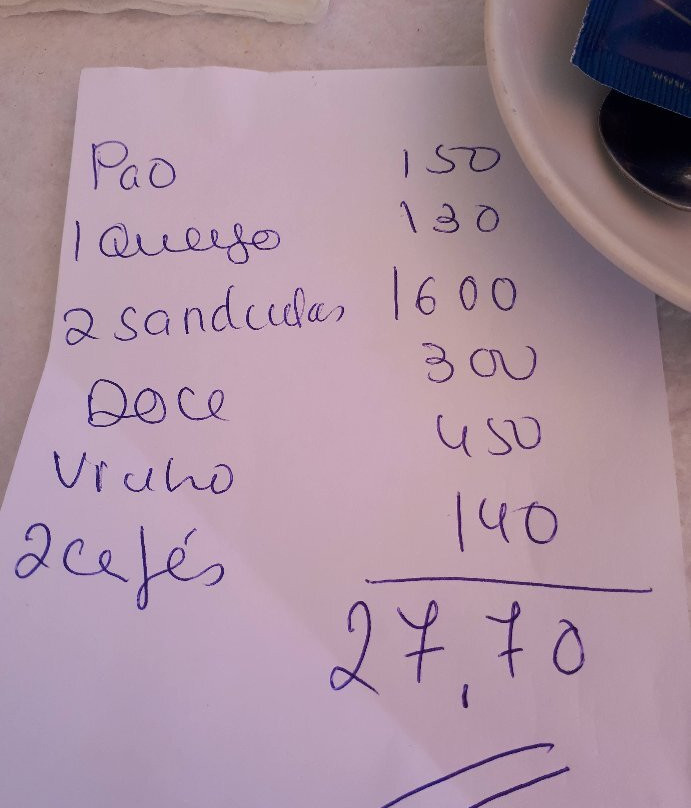 Pao 150
1 Queijo 130
2 sandculas 1600
Doce 300
Vinho 450
2 cafés 140
27,70